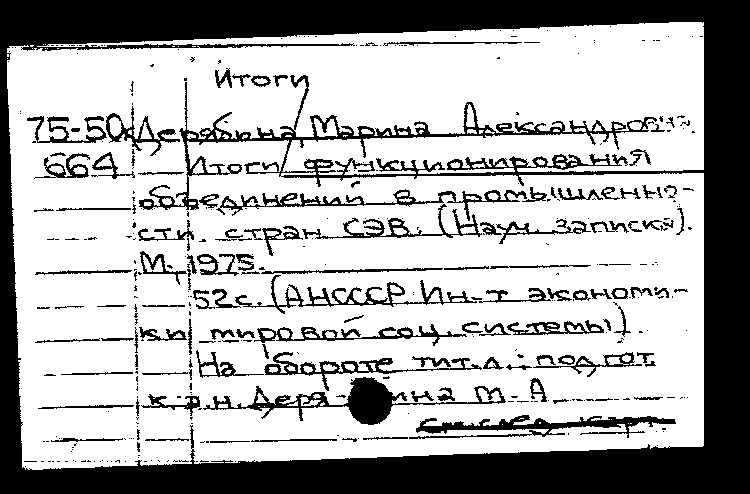 Итоги
75-50к Дерябина, Марина Александровна.
664 Итоги функционирования
объединений в промышленно-
сти стран СЭВ. (Науч. записка).
М., 1975.
52 с. (АН СССР Ин-т экономи-
ки мировой соц. системы).
На обороте тит. л.: подгот.
к.э.н. Деря- ина М. А.
См. след. карт.